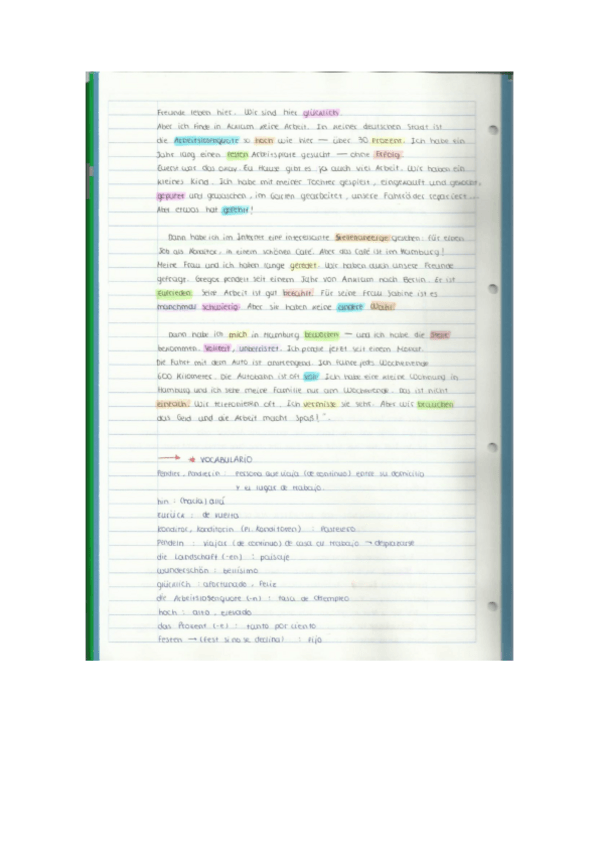 Freunde leben hier. Wir sind hier glücklich.
Aber ich finde in Anklam keine Arbeit. In keiner deutschen Stadt ist
die Arbeitslosenquote so hoch wie hier — über 30 Prozent. Ich habe ein
Jahr lang einen festen Arbeitsplatz gesucht — ohne Erfolg.
Zuerst war das okay. Zu Hause gibt es ja auch viel Arbeit. Wir haben ein
kleines Kind. Ich habe mit meiner Tochter gespielt, eingekauft und gekocht,
geputzt und gewaschen, im Garten gearbeitet, unsere Fahrräder repariert...
Aber etwas hat gefehlt!
Dann habe ich im Internet eine interessante Stellenanzeige gesehen. Für einen
Job als Konditor, in einem schönen Café. Aber das Café ist in Hamburg!
Meine Frau und ich haben lange geredet. Wir haben auch unsere Freunde
gefragt. Gregor pendelt seit einem Jahr von Anklam nach Berlin. Er ist
zufrieden. Seine Arbeit ist gut bezahlt. Für seine Frau Sabine ist es
manchmal schwierig. Aber sie haben keine andere Wahl.
Dann habe ich mich in Hamburg beworben — und ich habe die Stelle
bekommen. Vollzeit, unbefristet. Ich pendle jetzt seit einem Monat.
Die Fahrt mit dem Auto ist anstrengend. Ich fahre jedes Wochenende
600 Kilometer. Die Autobahn ist oft voll. Ich habe eine kleine Wohnung in
Hamburg und ich sehe meine Familie nur am Wochenende. Das ist nicht
einfach. Wir telefonieren oft. Ich vermisse sie sehr. Aber wir brauchen
das Geld und die Arbeit macht Spaß!".
→ * VOCABULARIO
Pendler, Pendlerin : persona que viaja (de continuo) entre su domicilio
y el lugar de trabajo.
hin : (hacia) allá
zurück : de vuelta
Konditor, Konditorin (n. Konditoren) : Pastelero
Pendeln : viajar (de continuo) de casa al trabajo → desplazarse
die Landschaft (-en) : paisaje
wunderschön : bellísimo
glücklich : afortunado, feliz
die Arbeitslosenquote (-n) : tasa de desempleo
hoch : alto, elevado
das Prozent (-e) : tanto por ciento
Festen → (fest si no se declina) : fijo